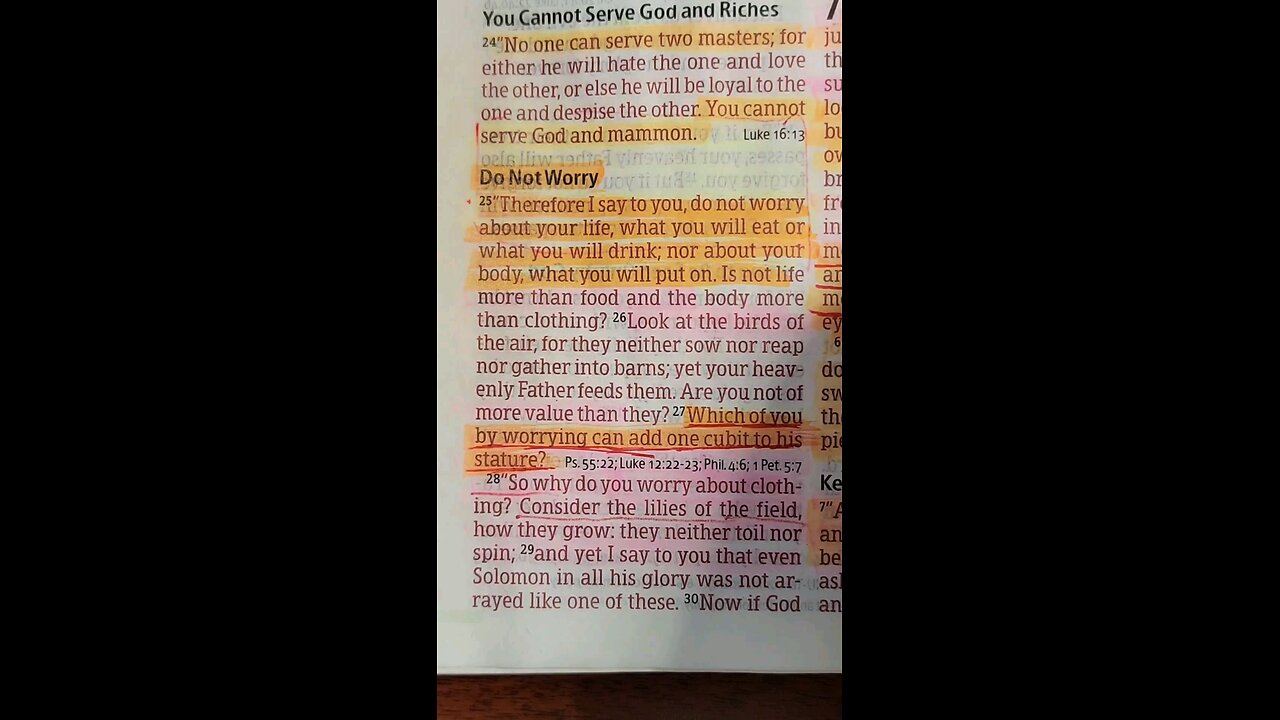 You Cannot Serve God and Riches
24"No one can serve two masters; for
either he will hate the one and love
the other, or else he will be loyal to the
one and despise the other. You cannot
serve God and mammon. Luke 16:13
Do Not Worry
25"Therefore I say to you, do not worry
about your life, what you will eat or
what you will drink; nor about your
body, what you will put on. Is not life
more than food and the body more
than clothing? 26Look at the birds of
the air, for they neither sow nor reap
nor gather into barns; yet your heav-
enly Father feeds them. Are you not of
more value than they? 27Which of you
by worrying can add one cubit to his
stature? Ps. 55:22; Luke 12:22-23; Phil. 4:6; 1 Pet. 5:7
28"So why do you worry about cloth-
ing? Consider the lilies of the field,
how they grow: they neither toil nor
spin; 29and yet I say to you that even
Solomon in all his glory was not ar-
rayed like one of these. 30Now if God